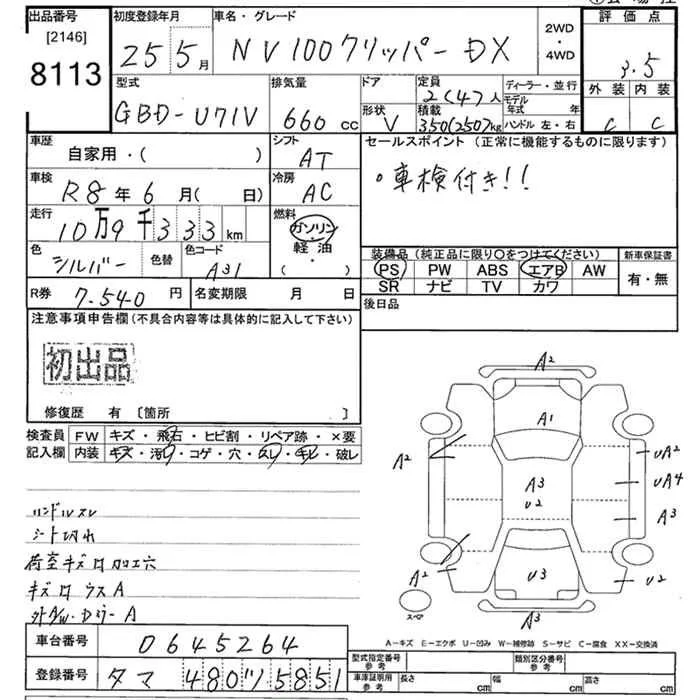 出品番号 初度登録年月 車名・グレード 2WD・4WD 評価点
[2146]
8113 25 5月 NV100クリッパー DX 3.5
型式 排気量 ドア 定員 2(4)人 ディーラー・並行 外装 内装
GBD-U71V 660cc 形状 V 積載 350(250)kg モデル年式 年 ハンドル 左・右 C C
車歴 自家用・( ) シフト AT セールスポイント(正常に機能するものに限ります)
車検 R8年6月(日) 冷房 AC 。車検付き!!
走行 10万9千333km 燃料 ガソリン・軽油( )
色 シルバー 色替 色コード A31 装備品(純正品に限り○をつけてください) 新車保証書
PS PW ABS エアB AW 有・無
SR ナビ TV カワ
R券 7.540円 名変期限 月 日 後日品
注意事項申告欄(不具合内容等は具体的に記入して下さい)
初出品
修復歴 有 [箇所 ]
検査員記入欄 FW キズ・飛石・ヒビ割・リペア跡・×要
内装 キズ・汚れ・コゲ・穴・スレ・キレ・破レ
A2
A1
A2 UA2
A3 UA4
U2 A3
A2 U3 U2
スペア A3
ハンドルスレ
シート切れ
荷室キズ□加工穴
キズ□ウスA
A-キズ E-エクボ U-凹み W-補修跡 S-サビ C-腐食 XX-交換済
車台番号 0645264
登録番号 タマ 480ツ5851
型式指定番号参考 類別区分番号参考
車庫証明用参考 長さ cm 幅 cm 高さ cm